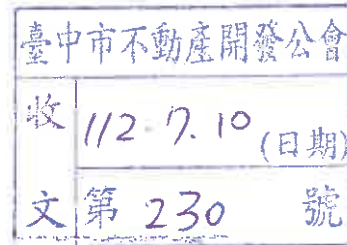 臺中市不動產開發公會
收 112.7.10 (日期)
文 第 230 號